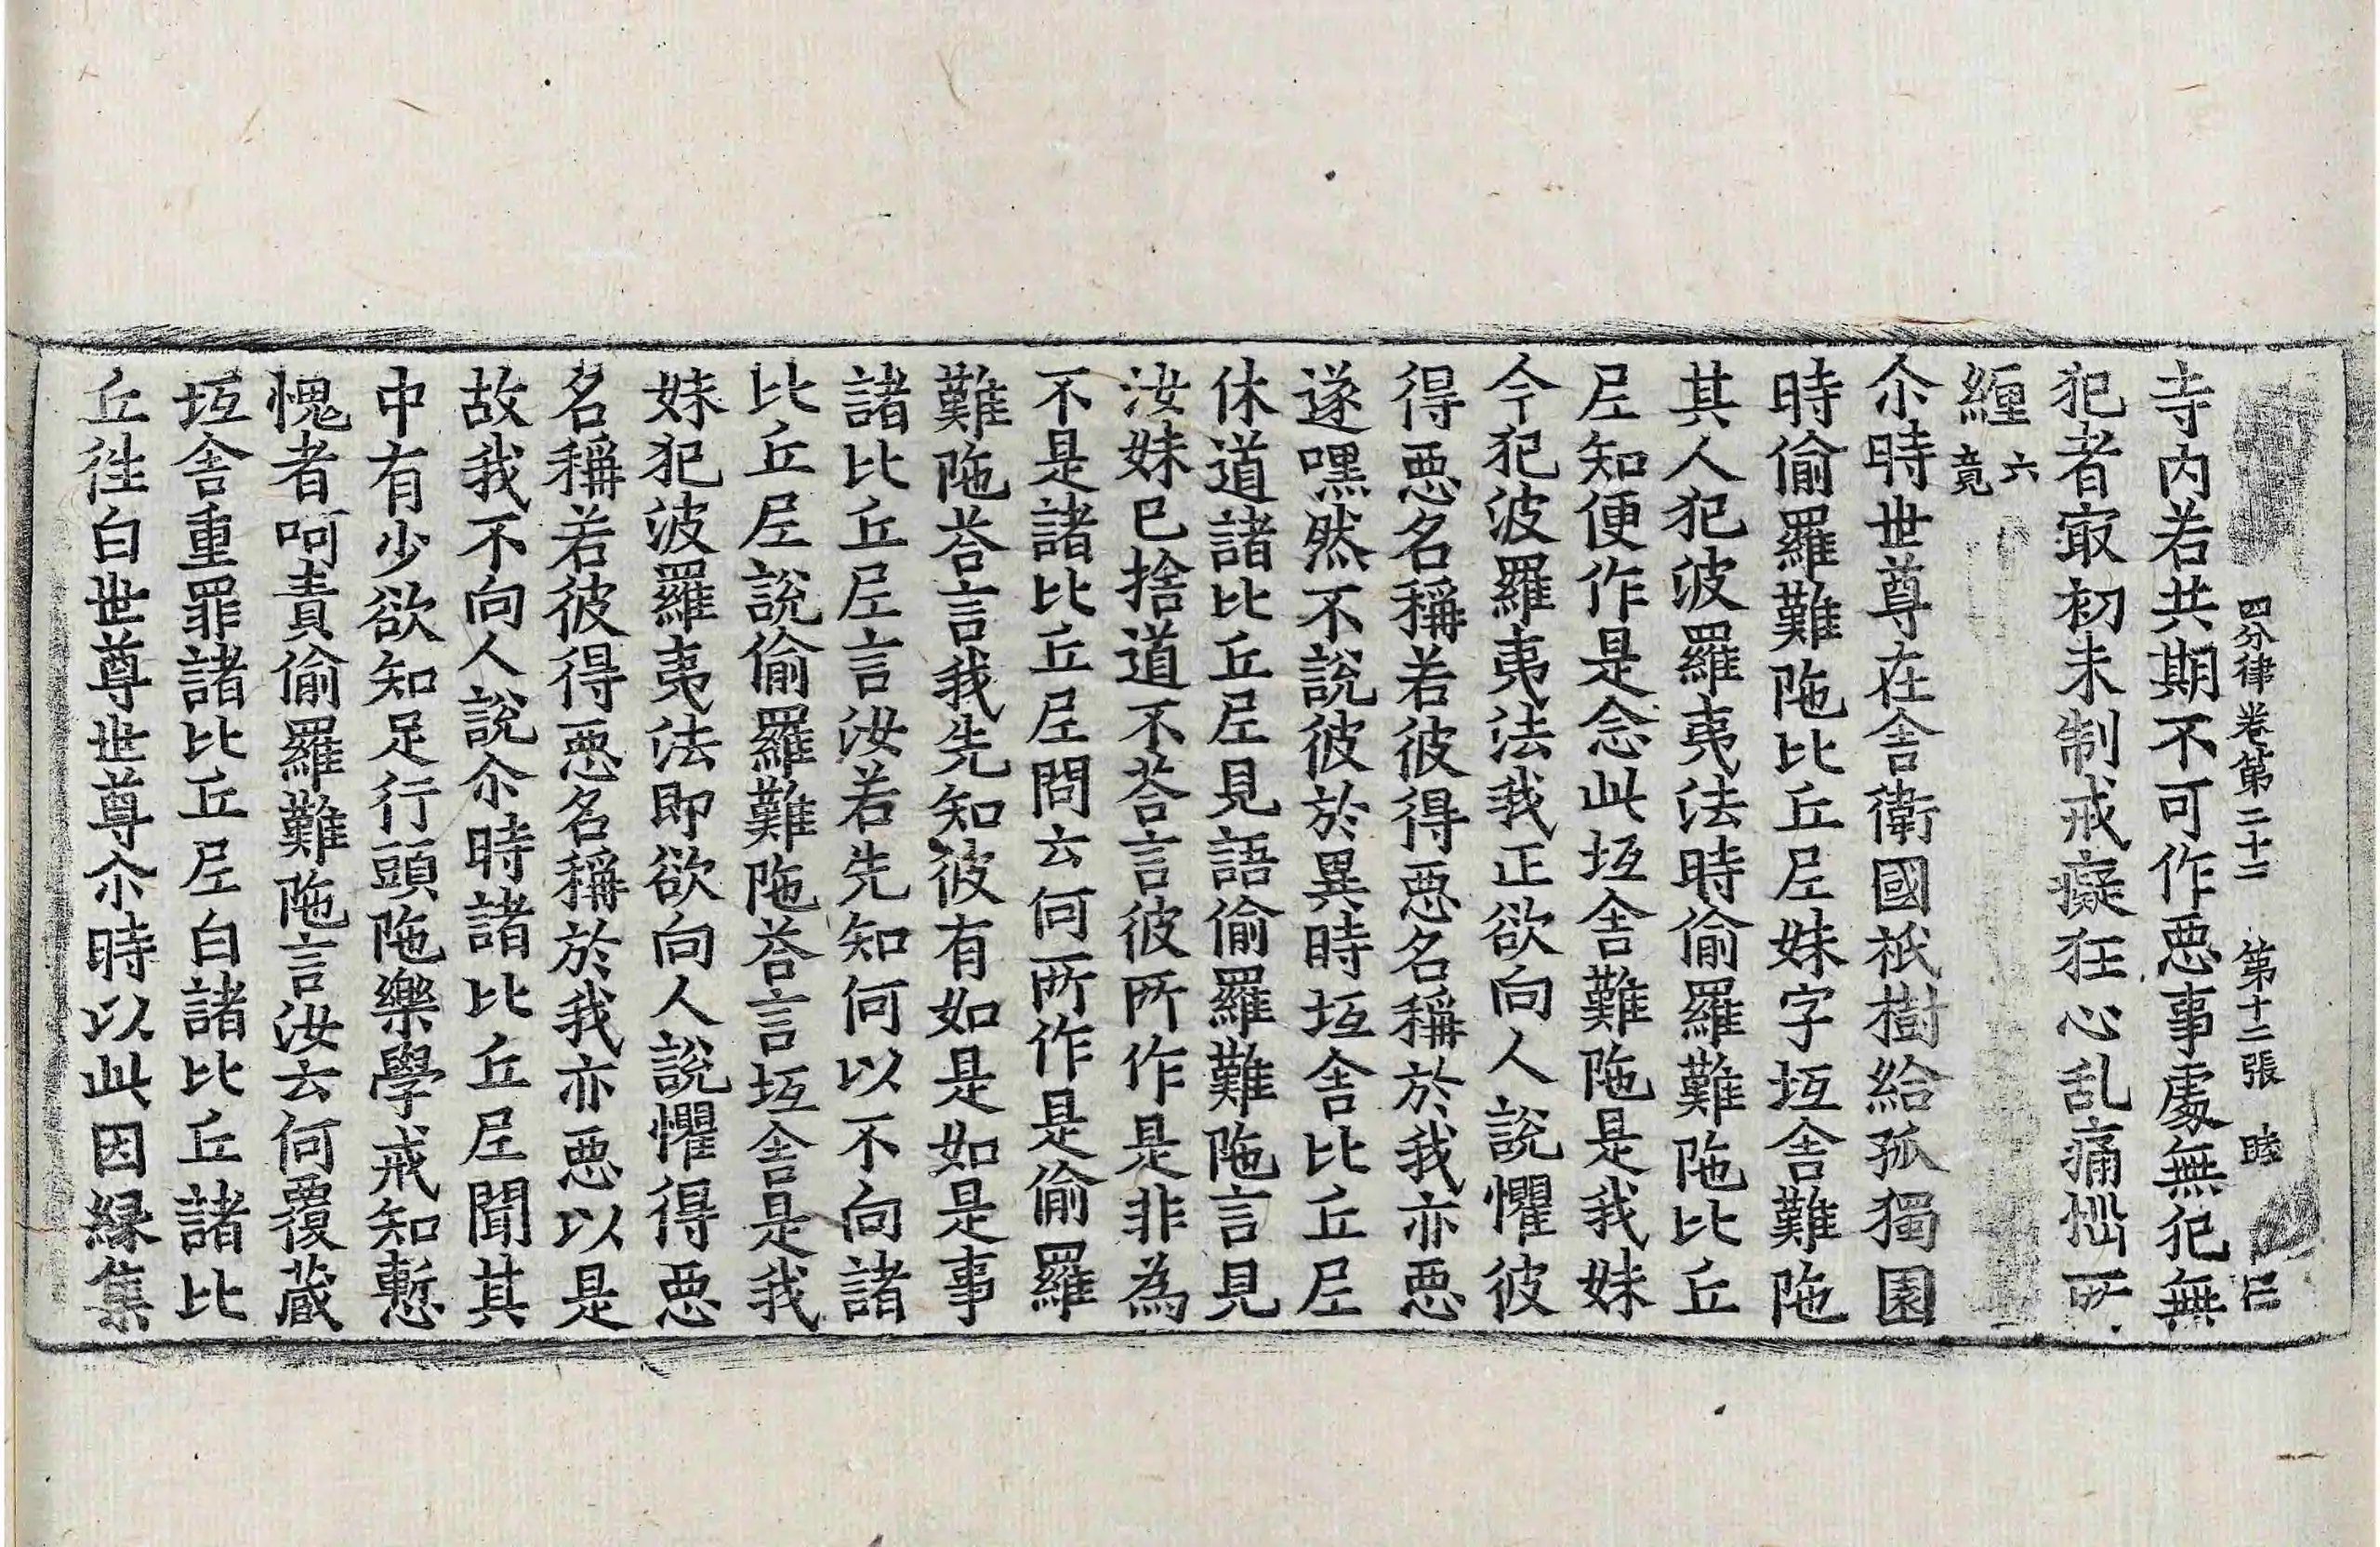 四分律卷第二十二　第十二張　睦
寺内若共期不可作惡事處無犯無
犯者㝡初未制戒癡狂心乱痛惱所
纏六竟
尒時世尊在舍衛國祇樹給孤獨園
時偷羅難陁比丘尼妹字坻舍難陁
其人犯波羅夷法時偷羅難陁比丘
尼知便作是念此坻舍難陁是我妹
今犯波羅夷法我正欲向人說懼彼
得惡名稱若彼得惡名稱於我亦惡
遂嘿然不說彼於異時坻舍比丘尼
休道諸比丘尼見語偷羅難陁言見
汝妹已捨道不荅言彼所作是非為
不是諸比丘尼問云何所作是偷羅
難陁荅言我先知彼有如是如是事
諸比丘尼言汝若先知何以不向諸
比丘尼說偷羅難陁荅言坻舍是我
妹犯波羅夷法即欲向人說懼得惡
名稱若彼得惡名稱於我亦惡以是
故我不向人說尒時諸比丘尼聞其
中有少欲知足行頭陁樂學戒知慙
愧者呵責偷羅難陁言汝云何覆藏
坻舍重罪諸比丘尼白諸比丘諸比
丘徃白世尊世尊尒時以此因緣集